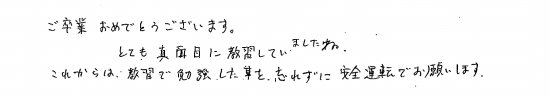 ご卒業 おめでとうございます。
とても 真面目に 教習していましたね。
これからは、教習で 勉強した事を、忘れずに 安全運転でお願いします。